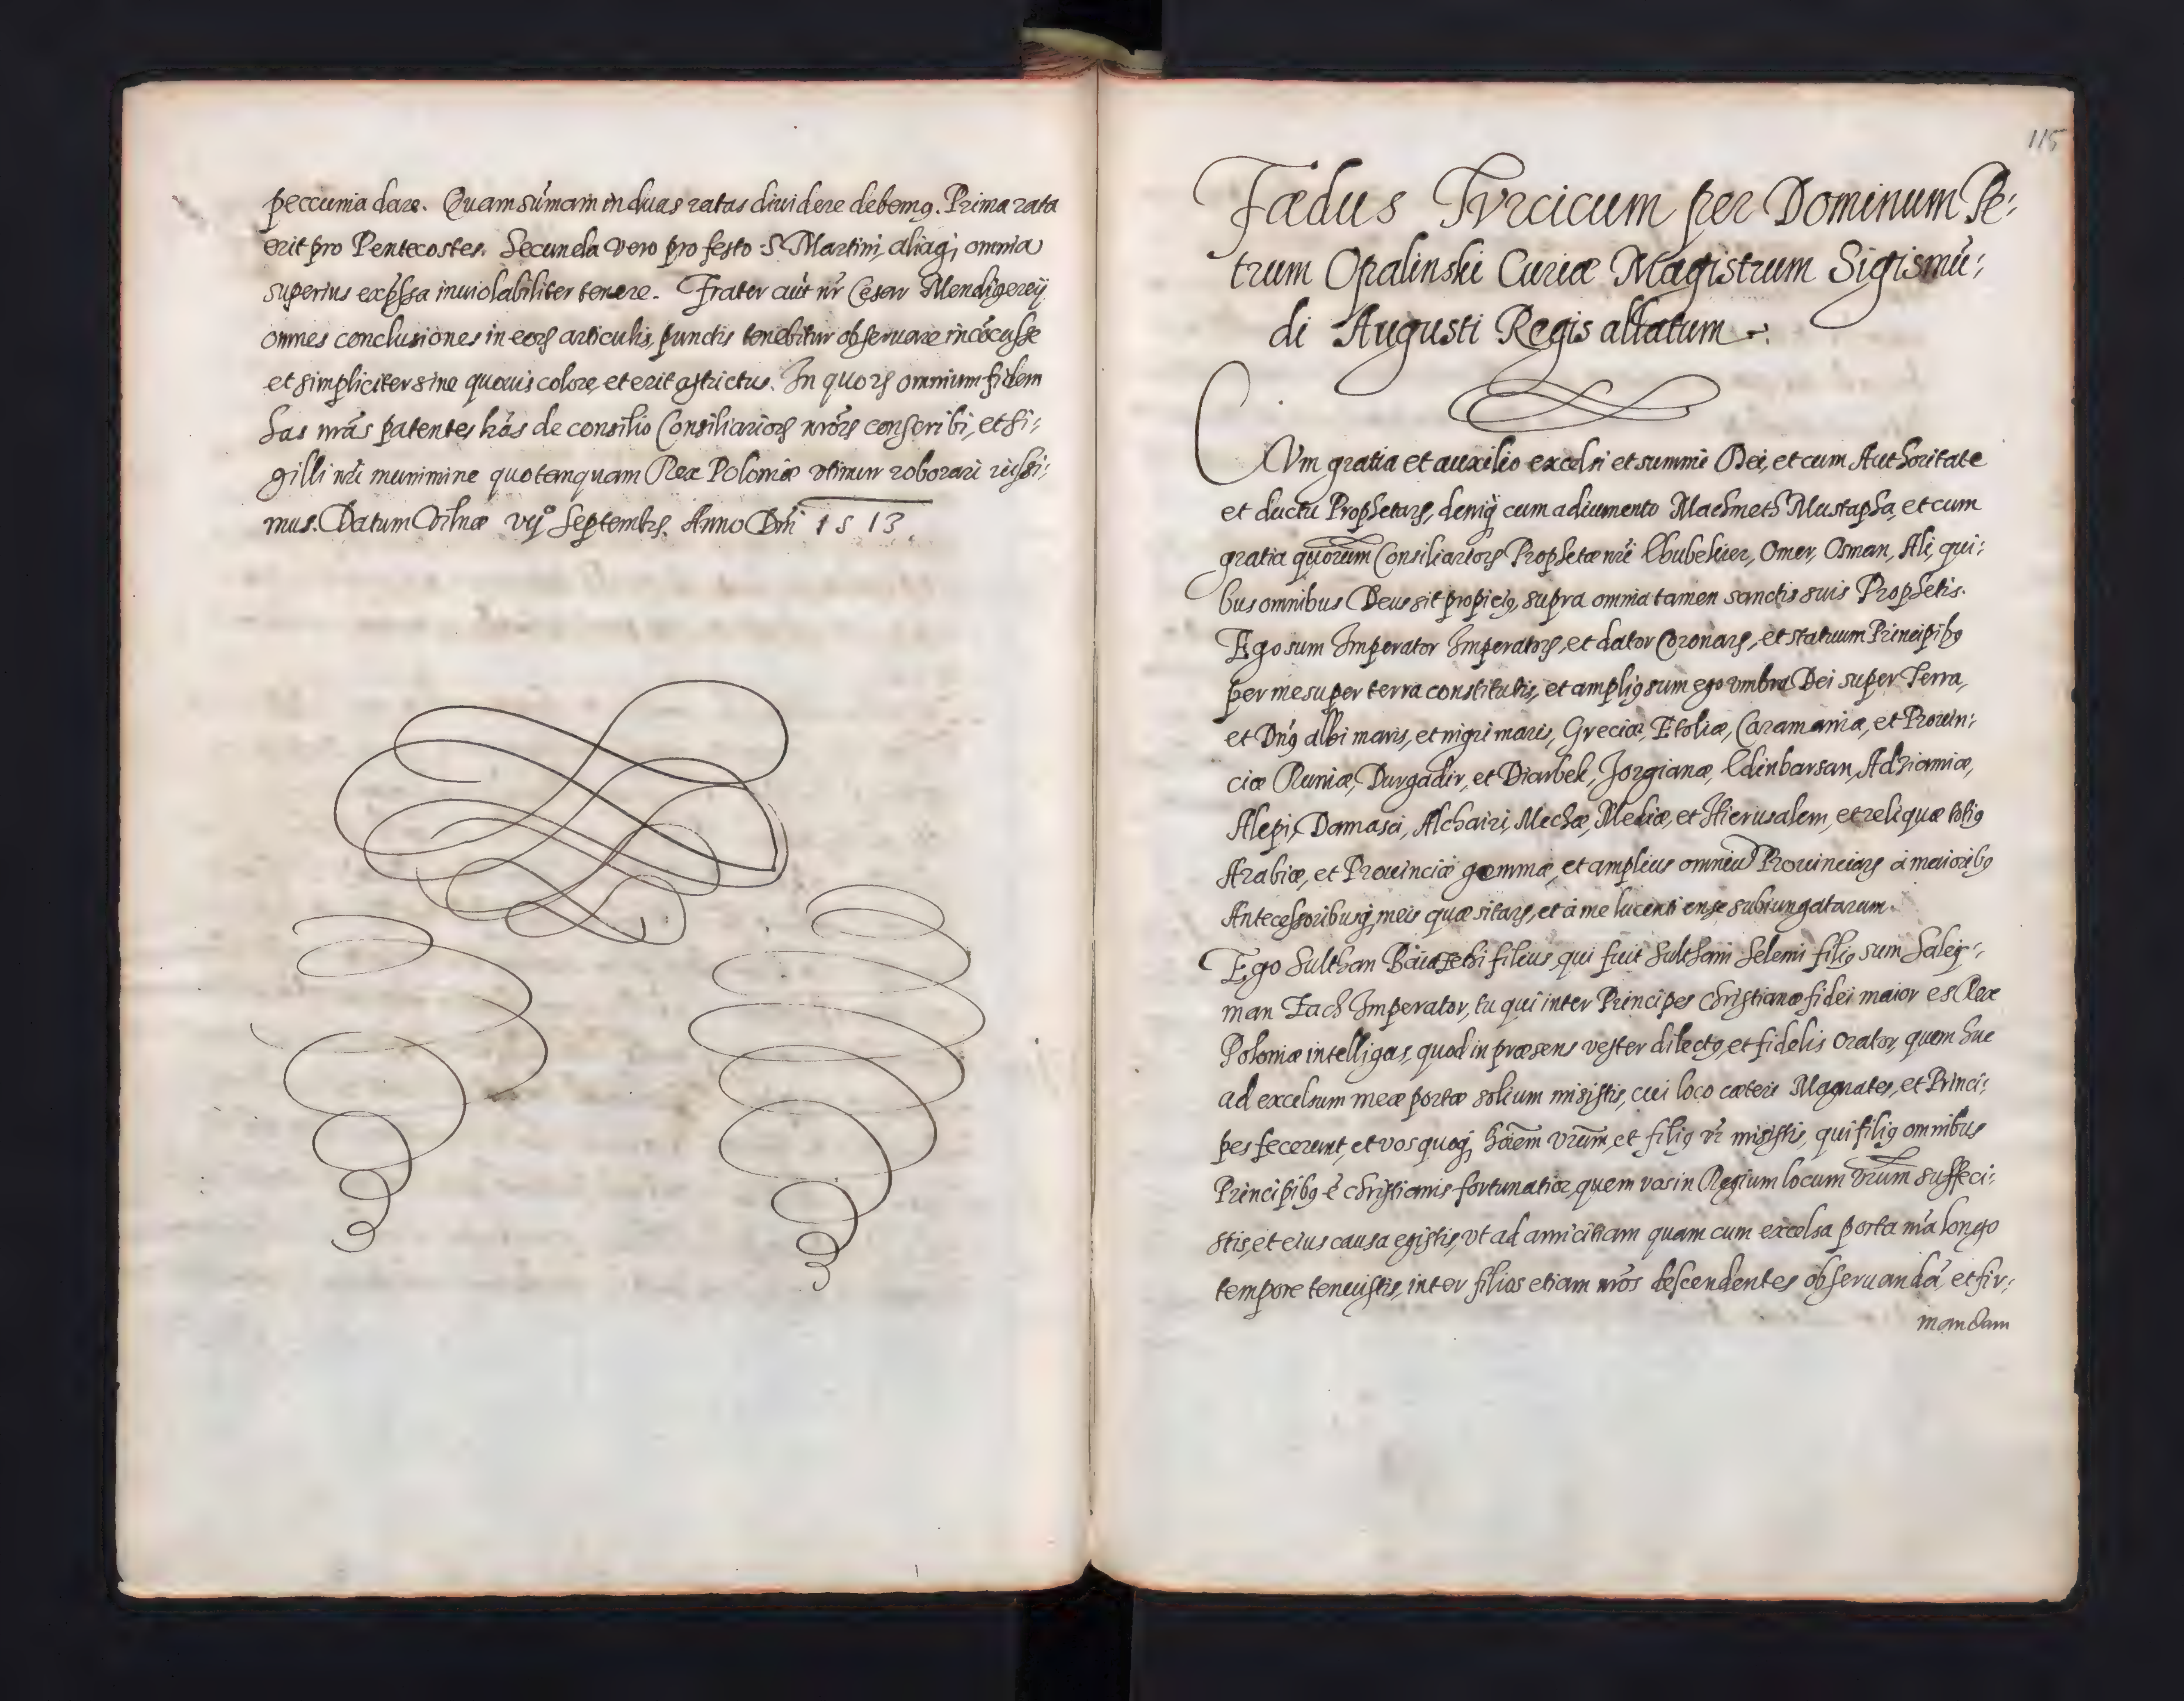 peccunia dare. Quam sum̃am in duas ratas diuidere debemꝰ. Prima rata
erit pro Pentecostes. Secunda vero pro festo S. Martini, aliaq; omnia
superius exp̃ssa inuiolabiliter tenere. Frater aũt nr̃ Cesar Mendigereij
omnes conclusiones in eorꝝ articulis, punctis tenebitur obseruare incõcusse
et simpliciter sine quouis colore, et erit astrictus. In quorꝝ omnium fidem
has nrãs patentes lrãs de consilio Consiliariorꝝ nrõrꝝ conscribi, et si:
gilli nri munimine quo tanquam Rex Poloniæ vtimur roborari iussi:
mus. Datum Vilnæ vijº Septembrs. Anno Dm̃i 1513.
115
Fœdus Tvrcicum per Dominum Pe:
trum Opalinski Curiæ Magistrum Sigismũ:
di Augusti Regis allatum
CVm gratia et auxilio excelsi et summi Dei, et cum Authoritate
et ductu Prophetarꝝ, deniq; cum adiumento Machmeth Mustapha, et cum
gratia quorum Consiliariorꝝ Prophetæ nrĩ Ebubekier, Omer, Osman, Ali, qui:
bus omnibus Deus sit propiciꝰ, supra omnia tamen sanctis suis Prophetis.
Ego sum Imperator Imperatorꝝ, et dator Coronarꝝ, et statuum Principibꝰ
per me super terra constitutis, et ampliꝰ sum ego vmbra Dei super Terra,
et Dnꝰ albi maris, et nigri maris, Greciæ, Etoliæ, Caramaniæ, et Prouin:
ciæ Rumiæ, Durgadir, et Diarbek, Jorgianæ, Edinbarsan, Adziamiæ,
Alepi, Damasci, Alchairi, Mechæ, Mediæ, et Hierusalem, et reliquæ totiꝰ
Arabiæ, et Prouinciæ gemmæ, et amplius omniũ Prouinciarꝝ à maioribꝰ
Antecessoribusq; meis quæsitarꝝ, et à me lucenti ense subiungatarum.
Ego Sulthan Baiazethi filius, qui fuit Sulthani Selemi filiꝰ sum Saley:
man Iach Imperator, tu qui inter Principes Christianæ fidei maior es Rex
Poloniæ intelligas, quod in præsens vester dilectꝰ, et fidelis Orator, quem huc
ad excelsum meæ portæ solium misistis, cui loco cæteri Magnates, et Princi:
pes fecerunt, et vos quoq; hõĩem vrũm, et filiꝰ vr̃ misistis, qui filiꝰ omnibus
Principibꝰ ẽ christianis fortunatior, quem vos in Regium locum vrũm suffeci:
stis, et eius causa egistis, vt ad amicitiam quam cum excelsa porta mẽa longo
tempore tenuistis, inter filios etiam nrõs descendentes obseruandã, et fir:
mandam